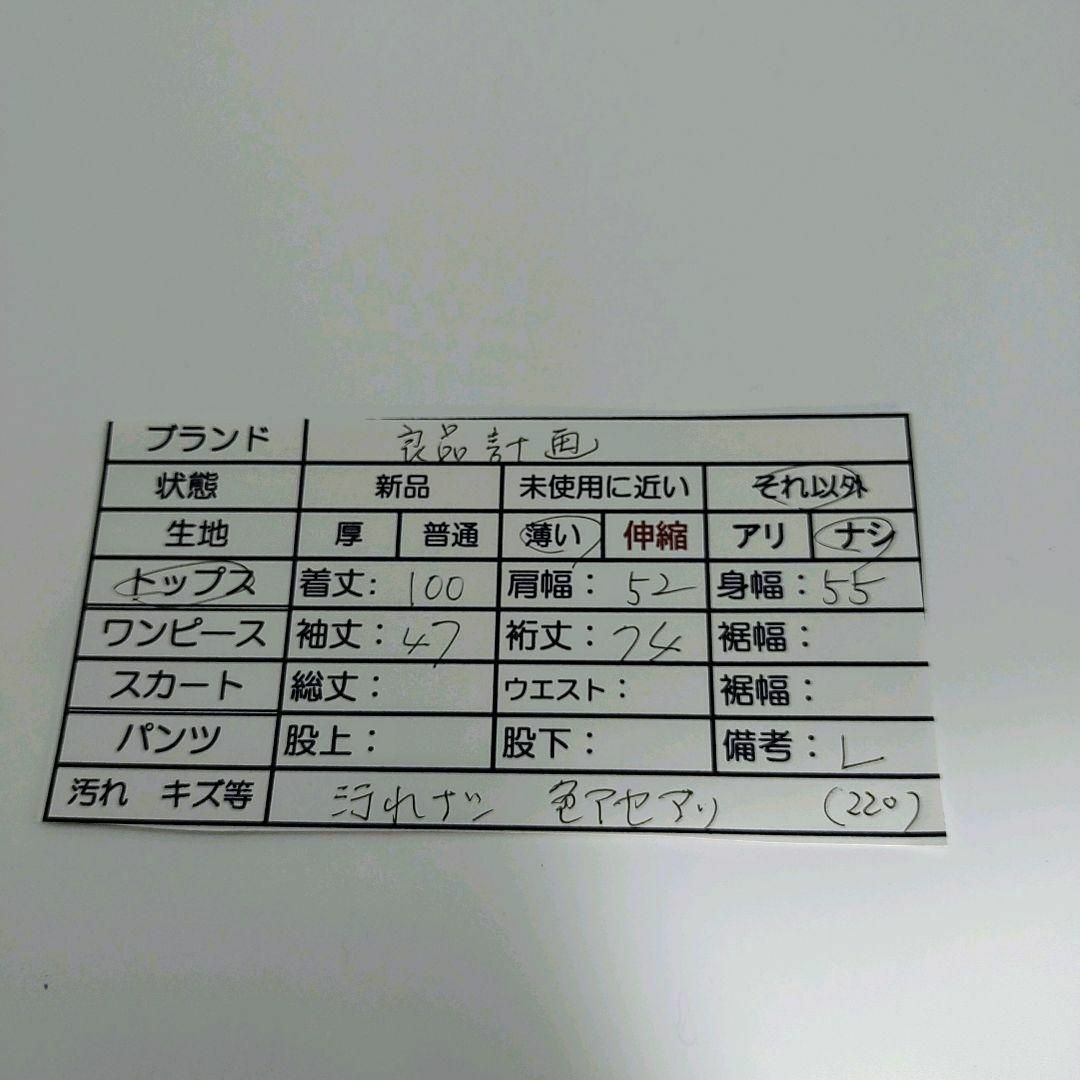 ブランド 良品計画
状態 新品 未使用に近い それ以外
生地 厚 普通 薄い 伸縮 アリ ナシ
トップス 着丈: 100 肩幅: 52 身幅: 55
ワンピース 袖丈: 47 裄丈: 74 裾幅:
スカート 総丈: ウエスト: 裾幅:
パンツ 股上: 股下: 備考: L
汚れ キズ等 汚れナシ 色アセアリ (220)